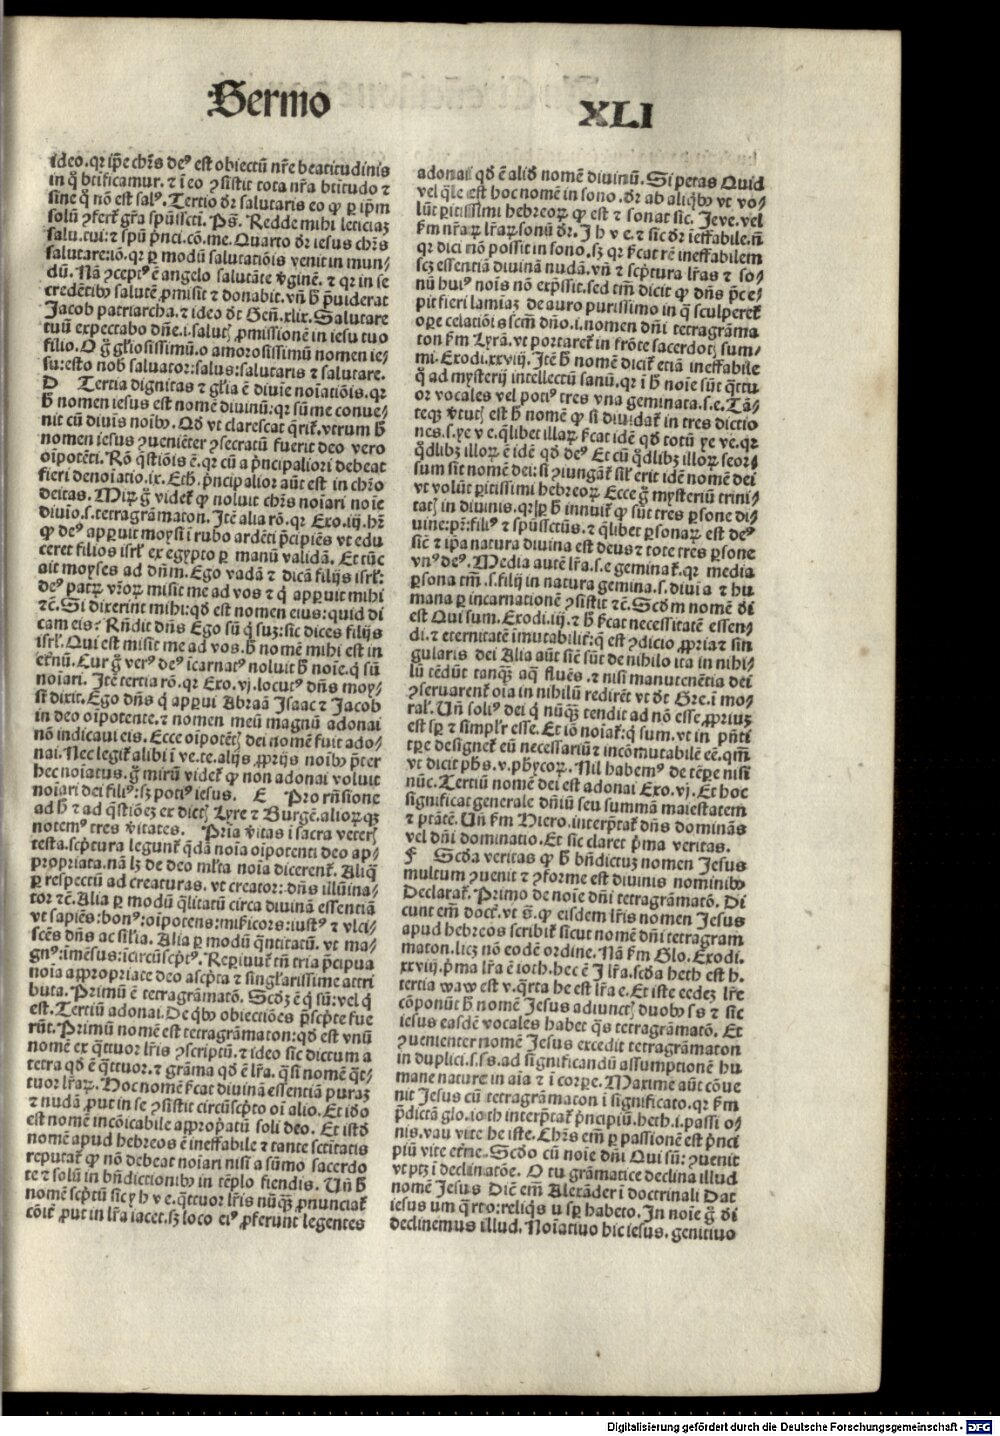 Sermo
XLI
ideo.qꝛ ip̄e chr̄s deꝰ est obiectū nr̄e beatitudinis
in q̊ btīficamur.⁊ ī eo ꝯsistit tota nr̄a btītudo ⁊
sine q̊ nō est salꝰ. Tertio dr̄ salutaris eo ꝙ ꝑ ip̄m
solū ꝯfert᷑ gr̄a spūssctī. Pš. Redde mihi leticiaꝫ
salu.tui:⁊ spū pͥnci.cō.me. Quarto dr̄ iesus chr̄s
salutare:iō.qꝛ ꝑ modū salutatiōis venit in mun⸗
dū. Nā ꝯceptꝰ ē angelo salutāte v̓ginē. ⁊ qꝛ in se
credētibꝰ salutē ꝓmisit ⁊ donabit. vn̄ h̄ p̄uiderat
Jacob patriarcha.⁊ ideo dt̄ Gen̄.xlix. Salutare
tuū expectabo dn̄e.i.salutꝭ ꝓmissionē in iesu tuo
filio. O g̊ gl̄iosissimū.o amorosissimū nomen ie⸗
su:esto nob̄ saluator:salus:salutaris ⁊ salutare.
D Tertia dignitas ⁊ gl̄ia ē diuīe noīatiōis.qꝛ
h̄ nomen iesus est nomē diuinū:qꝛ sūme conue⸗
nit cū diuīs noībꝰ. Qd̓ vt clarescat q̄rit᷑.vtrum h̄
nomen iesus ꝯueniēter ꝯsecratū fuerit deo vero
oīpotēti. Rō q̄stiōis ē.qꝛ cū a pͥncipaliori debeat
fieri denoīatio.ix. Eth̓. pͥncipalior aūt est in chr̄o
deitas. Miꝝ g̊ videt᷑ ꝙ noluit chr̄s noīari noīe
diuīo.s.tetragrāmaton. Itē alia rō.qꝛ Exo.iij.hr̄
ꝙ deꝰ apꝑuit moysi ī rubo ardēti p̄cipiēs vt edu
ceret filios isrl̄ ex egypto ꝑ manū validā. Et tūc
ait moyses ad dn̄m. Ego vadā ⁊ dicā filijs isrl̄:
deꝰ patꝝ vr̄oꝝ misit me ad vos ⁊ q̄ apꝑuit mihi
⁊č. Si dixerint mihi:qd̓ est nomen eius:quid di
cam eis? Rn̄dit dn̄s Ego sū q̇ suꝫ:sic dices filijs
isrl̄. Qui est misit me ad vos.h̄ nomē mihi est in
et̓nū. Cur g̊ verꝰ deꝰ īcarnatꝰ noluit h̄ noīe.q̇ sū
noīari. Itē tertia rō.qꝛ Exo.vj.locutꝰ dn̄s moy⸗
si dixit. Ego dn̄s q̇ apꝑui Abraā Isaac ⁊ Jacob
in deo oīpotente.⁊ nomen meū magnū adonai
nō indicaui eis. Ecce oīpotētꝭ dei nomē fuit ado⸗
nai. Nec legit᷑ alibi ī ve.te.alijs ꝓprijs noībꝰ p̄ter
hec noīatus.g̊ mirū videt᷑ ꝙ non adonai voluit
noīari dei filiꝰ:sꝫ potiꝰ iesus. E Pro rn̄sione
ad h̄ ⁊ ad q̄stiōeꝫ ex dictꝭ Lyre ⁊ Burgē.alioꝝqꝫ
notemꝰ tres v̓itates. Pͥma v̓itas ī sacra veterꝭ
testa.sc̄ptura legunt᷑ q̄dā noīa oīpotenti deo ap⸗
propriata.nā lꝫ de deo ml̄ta noīa dicerent᷑. Aliq̄
ꝑ respectū ad creaturas.vt creator:dn̄s illūina⸗
tor ⁊č. Alia ꝑ modū q̄litatū circa diuinā essentiā
vt sapiēs:bonꝰ:oīpotens:mīsicors:iustꝰ ⁊ vlci⸗
scēs dn̄s ac sil̄ia. Alia ꝑ modū q̄ntitatū. vt ma⸗
gnꝰ:īmēsus:īcircūsc̄ptꝰ. Reꝑiunt᷑ tn̄ tria p̄cipua
noīa appropriate deo asc̄pta ⁊ singl̄arissime attri
buta. Primū ē tetragrāmatō. Scd̓ꝫ ē q̇ sū:vel q̇
est. Tertiū adonai. De qͥbꝰ obiectiōes p̄sc̄pte fue
rūt. Primū nomē est tetragrāmaton:qd̓ est vnū
nomē ex q̄ttuor lr̄is ꝯscriptū.⁊ ideo sic dictum a
tetra qd̓ ē q̄ttuor.⁊ grāma qd̓ ē lr̄a.q̄si nomē q̄t⸗
tuor lr̄aꝝ. Hoc nomē s̄cat diuinā essentiā puraꝫ
⁊ nudā ꝓut in se ꝯsistit circūsc̄pto oī alio. Et id̓o
est nomē incōicabile approp̄atū soli deo. Et istd̓
nomē apud hebreos ē ineffabile ⁊ tante sctītatis
reputat᷑ ꝙ nō debeat noīari nisi a sūmo sacerdo
te ⁊ solū in bn̄dictionibꝰ in tēplo fiendis. Vn̄ h̄
nomē sc̄ptū sic y h v e.q̄ttuor lr̄is nūq̄ꝫ ꝓnunciat᷑
cōit̓ ꝓut in lr̄a iacet.sꝫ loco eiꝰ ꝓferunt legentes
adonai qd̓ ē aliđ nomē diuinū. Si petas Quid
vel q̄le est hoc nomē in sono. dr̄ ab aliqͥbꝰ vt vo⸗
lūt ꝑitissimi hebreoꝝ ꝙ est ⁊ sonat sic. Jeve. vel
ẜm nr̄aꝝ lr̄aꝝ sonū dr̄. J h v e. ⁊ sic dr̄ īeffabile.n̄
qꝛ dici nō possit in sono.sꝫ qꝛ s̄cat rē ineffabilem
scꝫ essentiā diuinā nudā. vn̄ ⁊ sc̄ptura lr̄as ⁊ so⸗
nū huiꝰ noīs nō exp̄ssit.sed tm̄ dicit ꝙ dn̄s p̄ce⸗
pit fieri lamiaꝫ de auro purissimo in q̊ sculperet᷑
oꝑe celatiōis scm̄ dn̄o.i.nomen dn̄i tetragrāma
ton ẜm Lyrā. vt portaret᷑ in frōte sacerdotꝭ sum⸗
mi. Exodi.xxviij. Itē h̄ nomē dicit᷑ etiā ineffabile
q̊ ad mysterij intellectū sanū.qꝛ ī h̄ noīe sūt q̄ttu
or vocales vel potiꝰ tres vna geminata.s.e. Tā⸗
teqꝫ v̓tutꝭ est h̄ nomē ꝙ si diuidat᷑ in tres dictio
nes.s.ye v e.q̄libet illaꝝ s̄cat idē qd̓ totū ye ve.qꝛ
q̊dlibꝫ illoꝝ ē idē qd̓ deꝰ Et cū q̊dlibꝫ illoꝝ seor⸗
sum sit nomē dei:si ꝯiungat᷑ sil̄r erit idē nomē dei
vt volūt ꝑitissimi hebreoꝝ Ecce g̊ mysteriū trini⸗
tatꝭ in diuinis.qꝛ ꝑ h̄ innuit᷑ ꝙ sūt tres ꝑsone di⸗
uine:pr̄:filiꝰ ⁊ spūssctūs.⁊ q̄libet ꝑsonaꝝ est deꝰ
sic̄ ⁊ ip̄a natura diuina est deus ⁊ tote tres ꝑsone
vnꝰ deꝰ. Media autē lr̄a.s.e geminat᷑.qꝛ media
ꝑsona tm̄ .s.filij in natura gemina.s.diuīa ⁊ hu
mana ꝑ incarnationē ꝯsistit ⁊č. Scd̓m nomē di
est Qui sum. Exodi.iij.⁊ h̄ s̄cat necessitatē essen⸗
di.⁊ eternitatē īmutabilit̓:q̄ est ꝯdicio ꝓpria ⁊ sin
gularis dei Alia aūt sic̄ sūt de nihilo ita in nihi⸗
lū tēdūt tanq̄ꝫ aq̄ fluēs.⁊ nisi manutenētia dei
ꝯseruarent᷑ oīa in nihilū redirēt vt dt̄ Gre.ī mo⸗
ral̄. Vn̄ soliꝰ dei q̇ nūq̄ꝫ tendit ad nō esse ꝓpriuꝫ
est sꝑ ⁊ simpl̄r esse. Et iō noīat᷑:q̇ sum. vt in p̄nti
tꝑe designet᷑ eū necessariū ⁊ incōmutabilē eē.qm̄
vt dicit ph̄s.v.phycoꝝ. Nil habemꝰ de tēꝑe nisi
nūc. Tertiū nomē dei est adonai Exo.vj. Et hoc
significat generale dn̄iū seu summā maiestatem
⁊ ptātē. Vn̄ ẜm Hiero.interp̄tat᷑ dn̄s dominās
vel dn̄i dominatio. Et sic claret pͥma veritas.
F Scd̓a veritas ꝙ h̄ bn̄dictuꝫ nomen Jesus
multum ꝯuenit ⁊ ꝯforme est diuinis nominibꝰ
Declarat᷑. Primo de noīe dn̄i tetragrāmatō. Di
cunt em̄ doct̓. vt s̄. ꝙ eisdem lr̄is nomen Jesus
apud hebreos scribit᷑ sicut nomē dn̄i tetragram
maton.licꝫ nō eodē ordine. Nā ẜm Glo. Exodi.
xxviij. pͥma lr̄a ē ioth.hec ē J lr̄a.scd̓a heth est h.
tertia waw est v.q̄rta he est lr̄a e. Et iste eedeꝫ lr̄e
cōponūt h̄ nomē Jesus adiunctꝭ duobꝰ s s ⁊ sic
iesus easdē vocales habet q̄s tetragrāmatō. Et
ꝯuenienter nomē Jesus excedit tetragrāmaton
in duplici.s.s.ad significandū assumptionē hu
mane nature in aīa ⁊ ī corꝑe. Maxime aūt cōue
nit Jesus cū tetragrāmaton ī significato.qꝛ ẜm
p̄dictā glo.ioth interp̄tat᷑ pͥncipiū.heth.i.passi o⸗
nis.vau vite he iste. Chr̄s em̄ ꝑ passionē est pͥnci
piū vite et̓ne. Scd̓o cū noīe dn̄i Qui sū: ꝯuenit
vt ptꝫ ī declinatōe. O tu grāmatice declina illud
nomē Jesus Dic̄ em̄ Alexāder ī doctrinali Dat
iesus um q̄rto:reliqͥs u sꝑ habeto. In noīe g̊ di
declinemus illud. Noīatiuo hic iesus. genitiuo
Digitalisierung gefördert durch die Deutsche Forschungsgemeinschaft - DFG